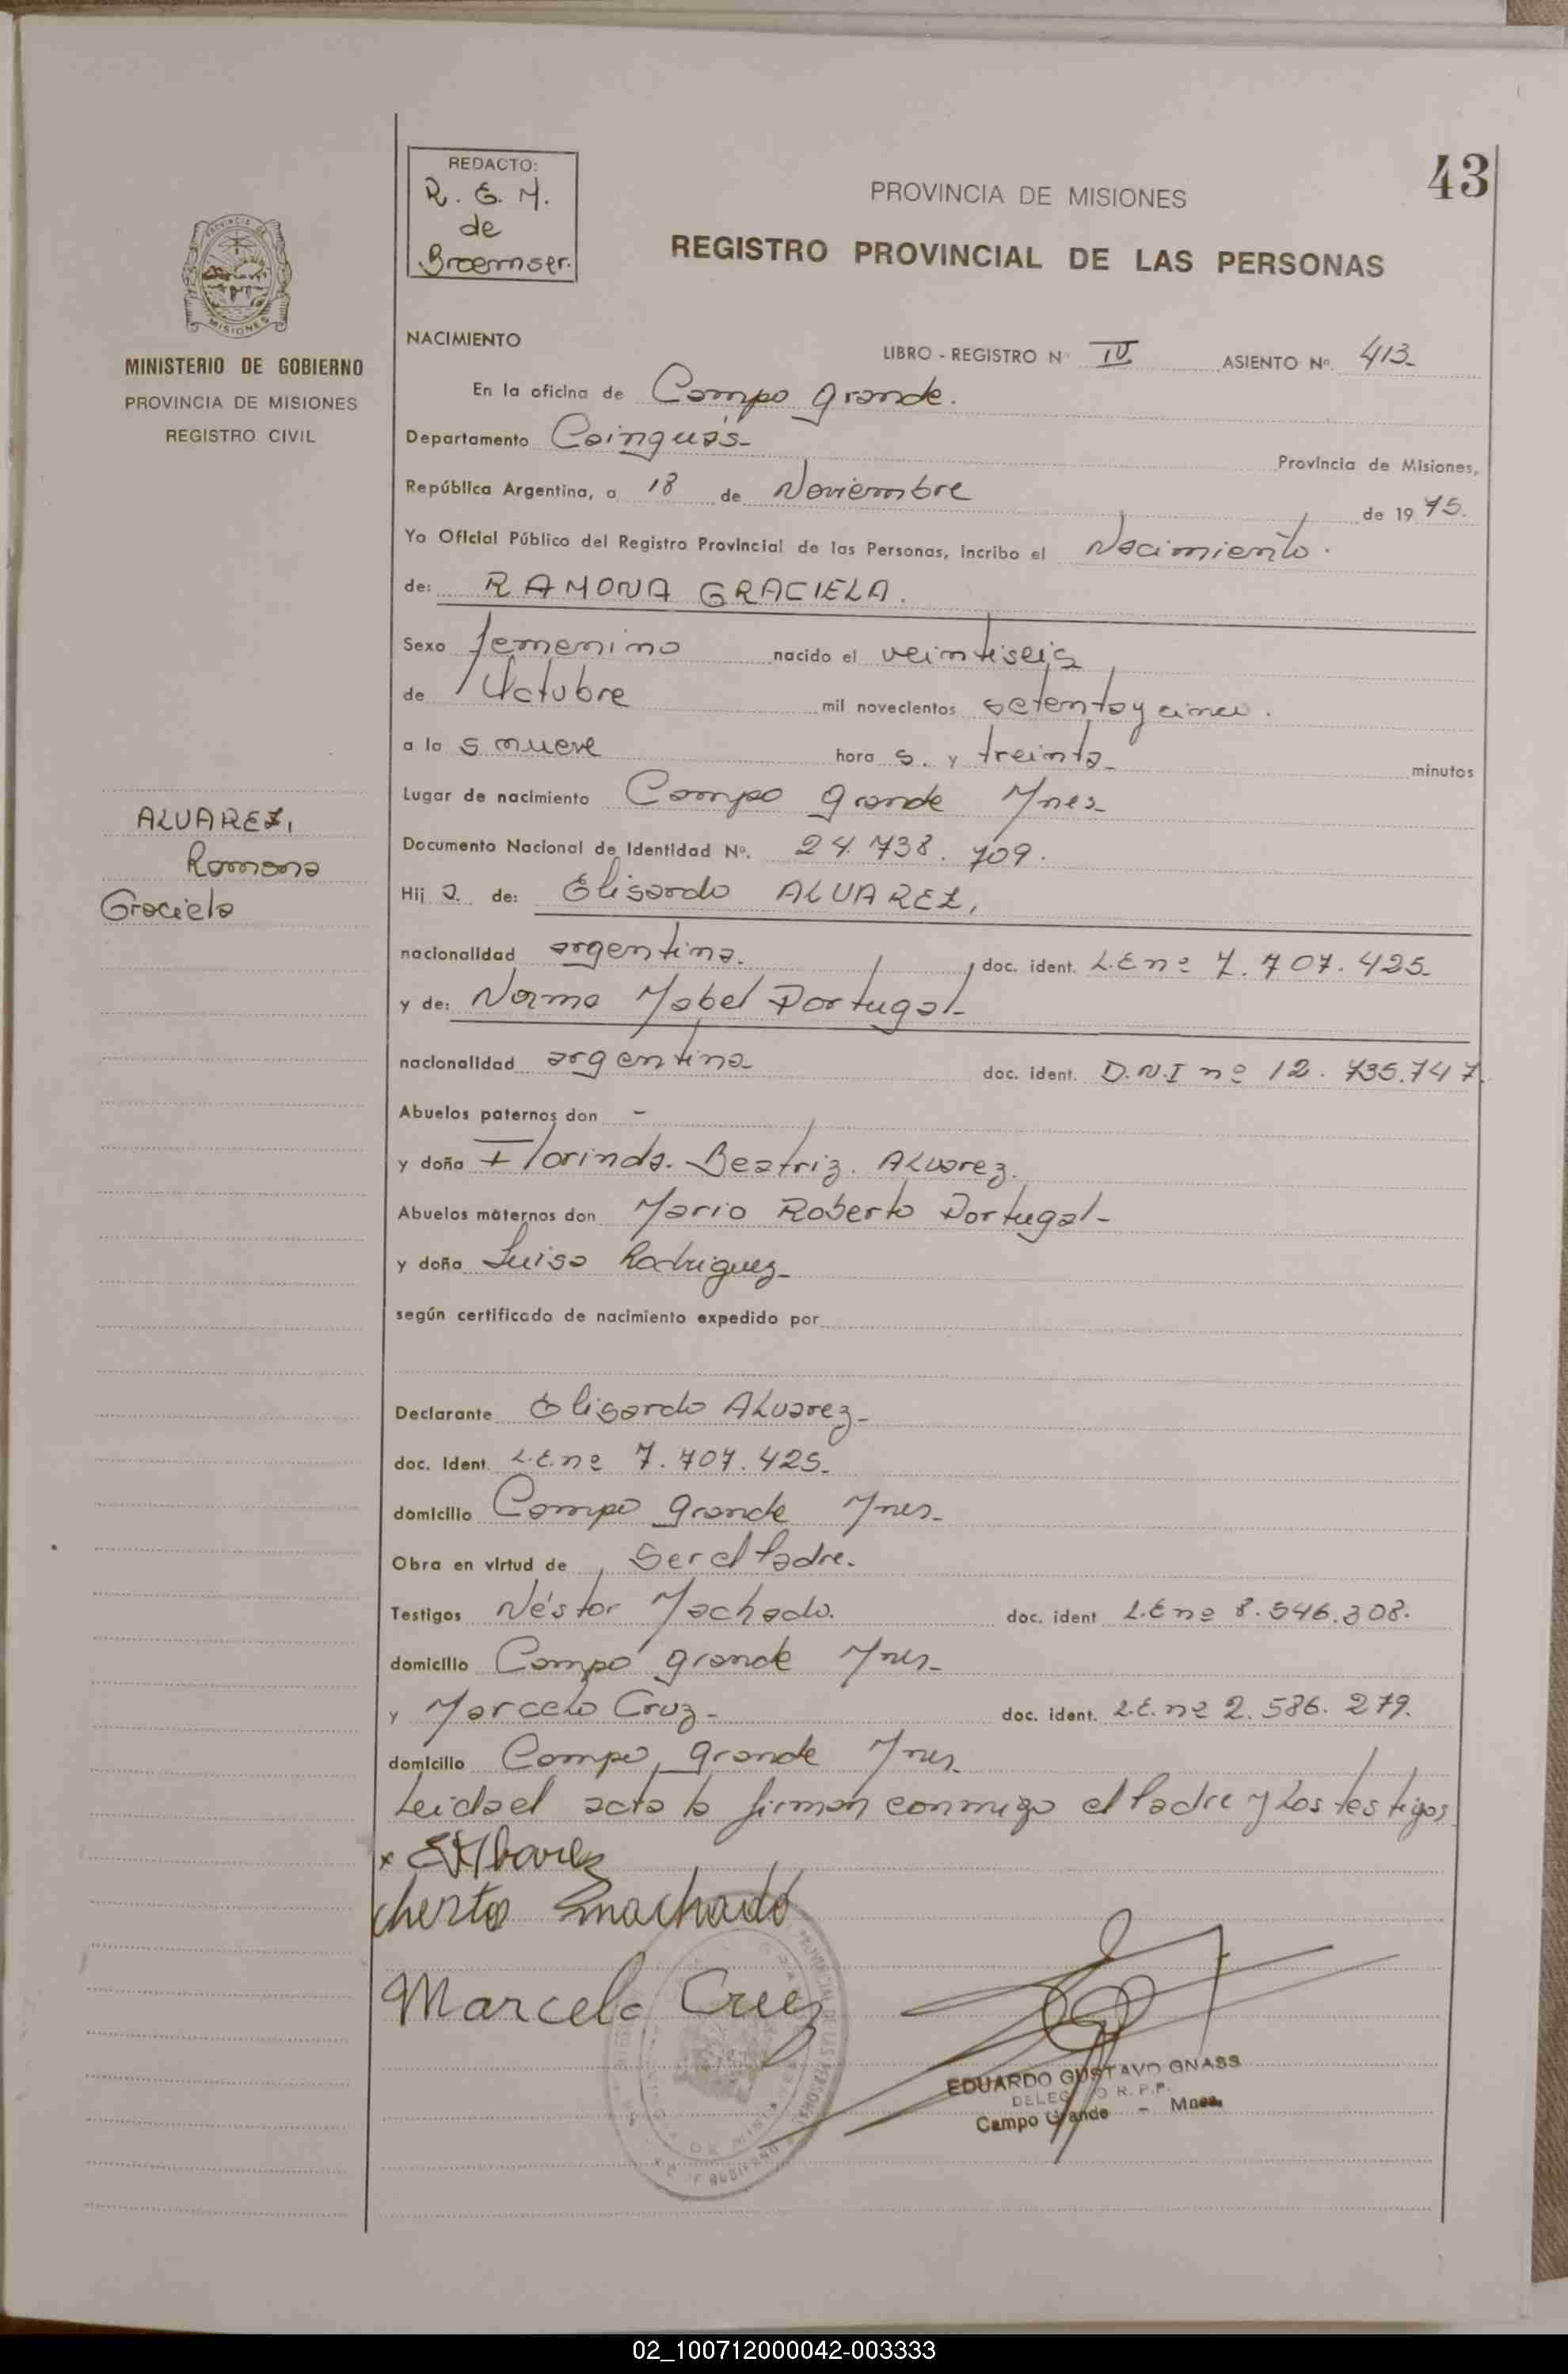 43
REDACTO:
R. G. M.
de
Broemser.
PROVINCIA DE MISIONES
REGISTRO PROVINCIAL DE LAS PERSONAS
MINISTERIO DE GOBIERNO
PROVINCIA DE MISIONES
REGISTRO CIVIL
NACIMIENTO
LIBRO - REGISTRO Nº IV ASIENTO Nº. 413-
En la oficina de Campo grande.
Departamento Cainguás- Provincia de Misiones,
República Argentina, a 18 de Noviembre de 1975.
Yo Oficial Público del Registro Provincial de las Personas, incribo el Nacimiento.
de: RAMONA GRACIELA.
Sexo femenino nacido el veintiseis
de Octubre mil novecientos setenta y cinco.
a la s nueve hora s. y treinta- minutos
Lugar de nacimiento Campo grande Mnes-
ALVAREZ,
Ramona
Graciela
Documento Nacional de Identidad Nº. 24.738.709.
Hij a. de: Elisardo ALVAREZ,
nacionalidad argentina. doc. ident. L.E nº 7.707.425-
y de: Norma Mabel Portugal-
nacionalidad argentina- doc. ident. D.N.I nº 12.735.747.
Abuelos paternos don -
y doña Florinda. Beatriz. Alvarez.
Abuelos maternos don Mario Roberto Portugal-
y doña Luisa Rodriguez-
según certificado de nacimiento expedido por
Declarante Elisardo Alvarez-
doc. Ident. L.E. nº 7.707.425-
domicilio Campo grande Mnes-
Obra en virtud de Ser el Padre.
Testigos Néstor Machado. doc. ident L.E nº 8.546.308.
domicilio Campo grande Mnes-
y Marcelo Cruz- doc. ident. L.E. nº 2.586.279.
domicilio Campo grande Mnes-
Leida el acta la firman conmigo el Padre y Los testigos
x E Alvarez
machado
Marcelo Cruz
EDUARDO GUSTAVO GNASS
R. P. P.
Campo Grande - Mnes.
02_100712000042-003333